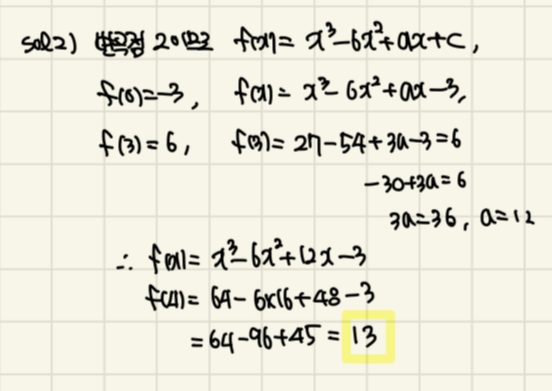 sol2) 변곡점 2이므로 f(x)= x³-6x²+ax+c,
f(0)=-3, f(x)= x³-6x²+ax-3,
f(3)=6, f(3)= 27-54+3a-3=6
-30+3a=6
3a=36, a=12
∴ f(x)= x³-6x²+12x-3
f(4)= 64-6×16+48-3
=64-96+45 = 13